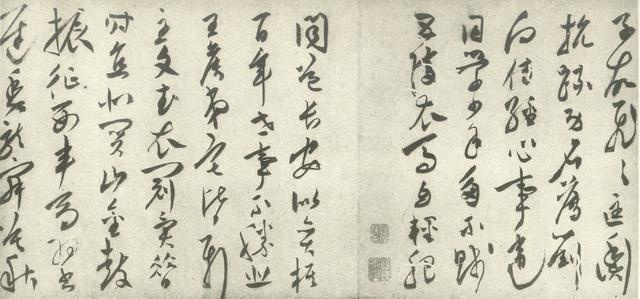 子故飛〻匡衡
抗疏功名薄劉
向傳經心事違
同學少年多不賤
五陵衣馬自輕肥
聞道長安似奕棋
百年世事不勝悲
王侯第宅皆新
主文武衣冠異昔
時直北關山金鼓
振征西車馬羽書
遲魚龍寂寞秋